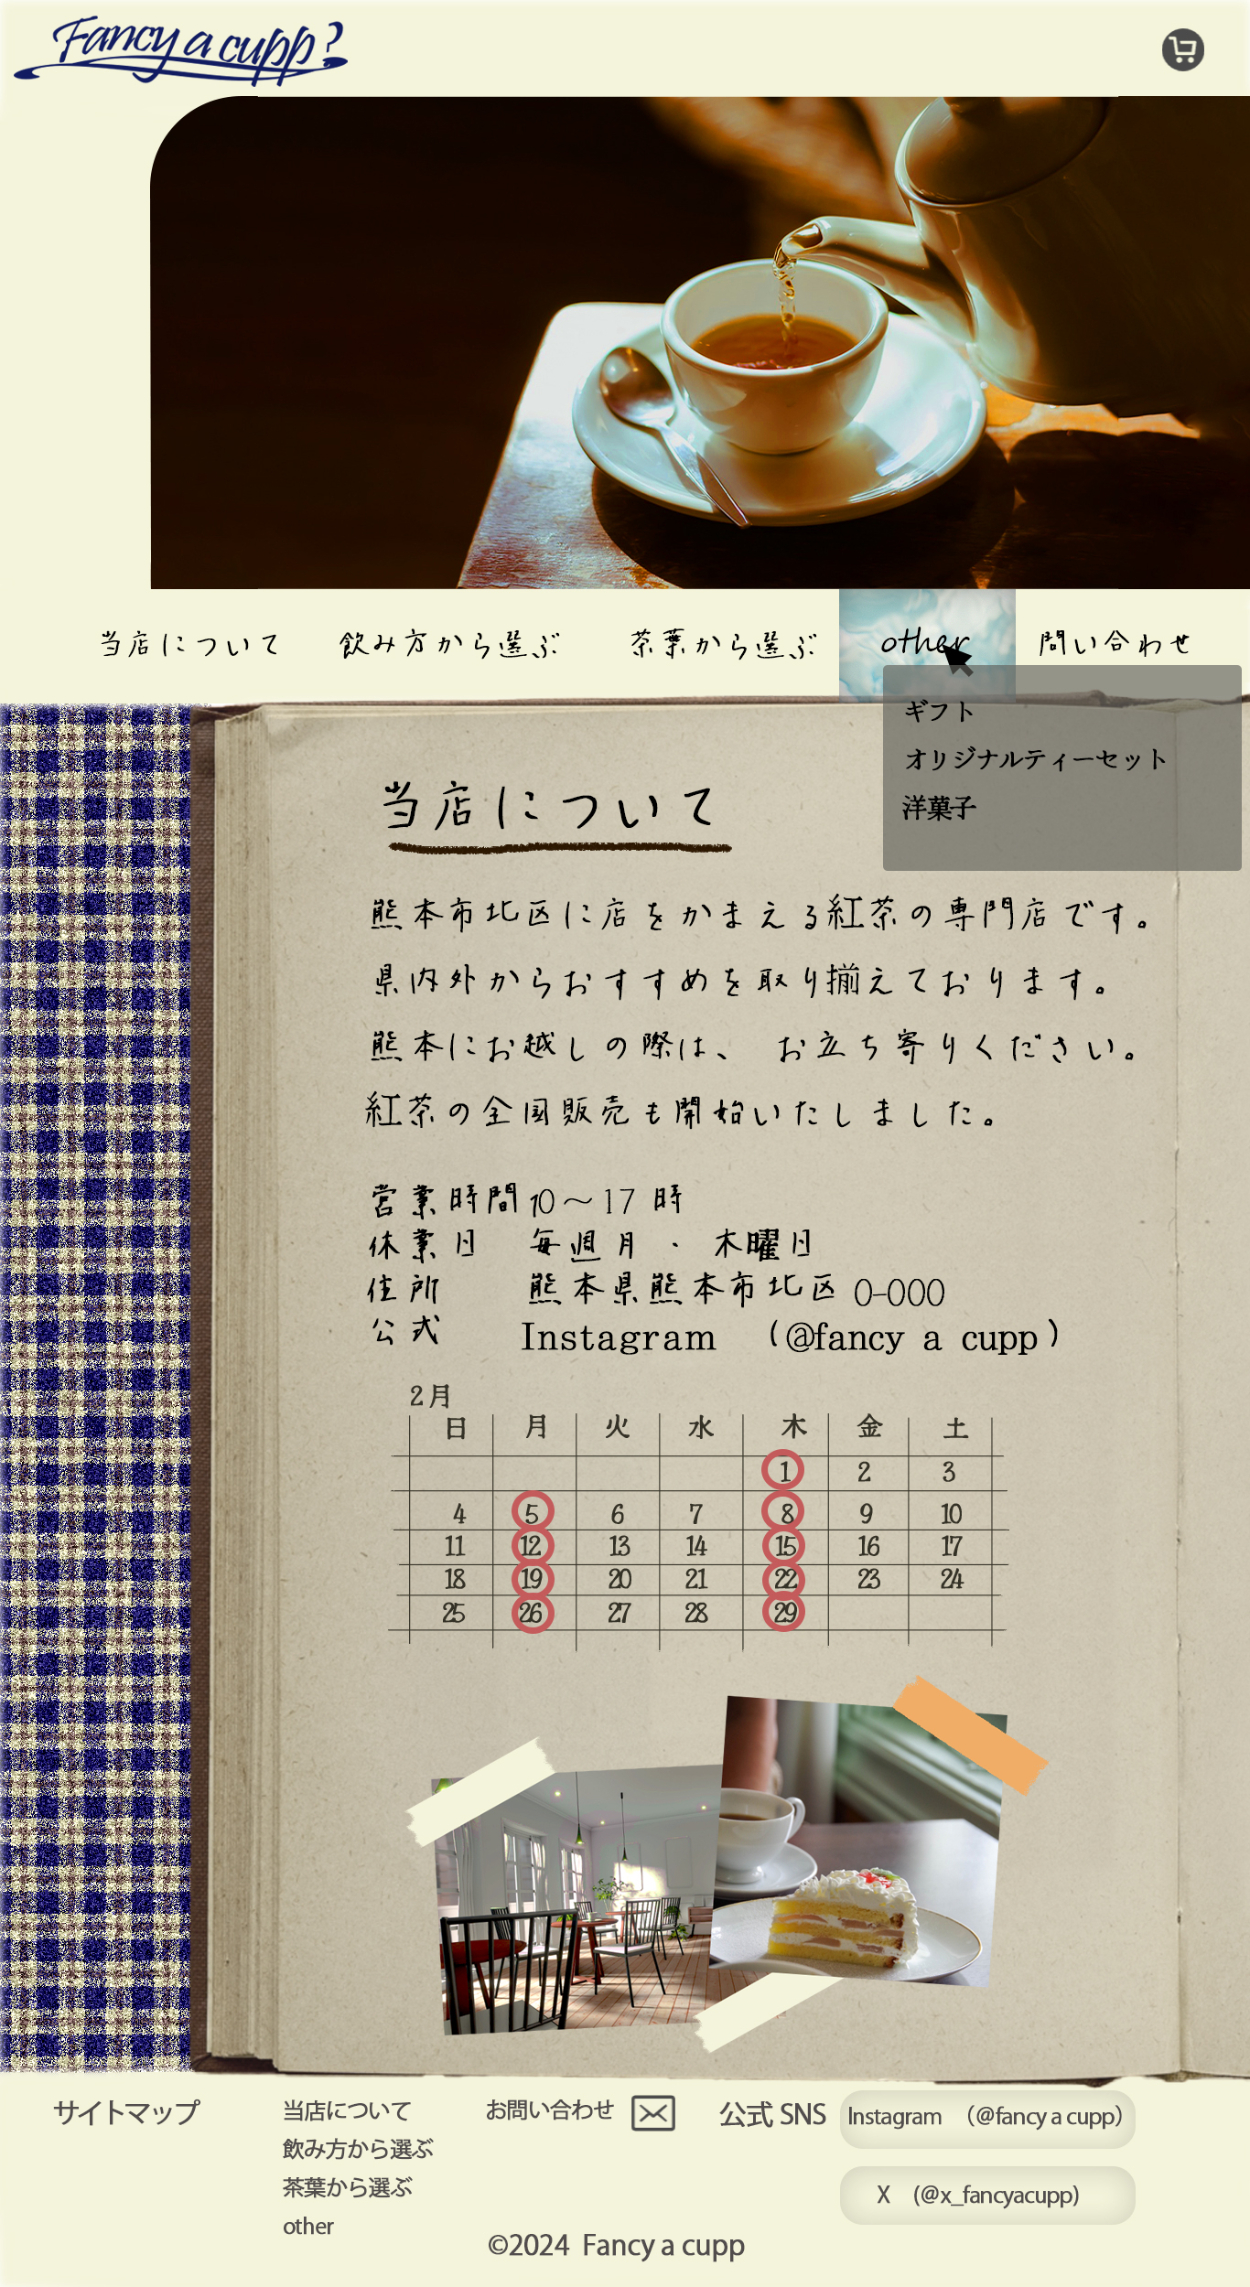 Fancy a cupp?
当店について 飲み方から選ぶ 茶葉から選ぶ other 問い合わせ
ギフト
オリジナルティーセット
洋菓子
当店について
熊本市北区に店をかまえる紅茶の専門店です。
県内外からおすすめを取り揃えております。
熊本にお越しの際は、 お立ち寄りください。
紅茶の全国販売も開始いたしました。
営業時間10〜17時
休業日 毎週月・木曜日
住所 熊本県熊本市北区0-000
公式 Instagram (@fancy a cupp)
2月
日 月 火 水 木 金 土
1 2 3
4 5 6 7 8 9 10
11 12 13 14 15 16 17
18 19 20 21 22 23 24
25 26 27 28 29
サイトマップ
当店について
飲み方から選ぶ
茶葉から選ぶ
other
お問い合わせ
公式 SNS
Instagram (@fancy a cupp)
X (@x_fancyacupp)
©2024 Fancy a cupp